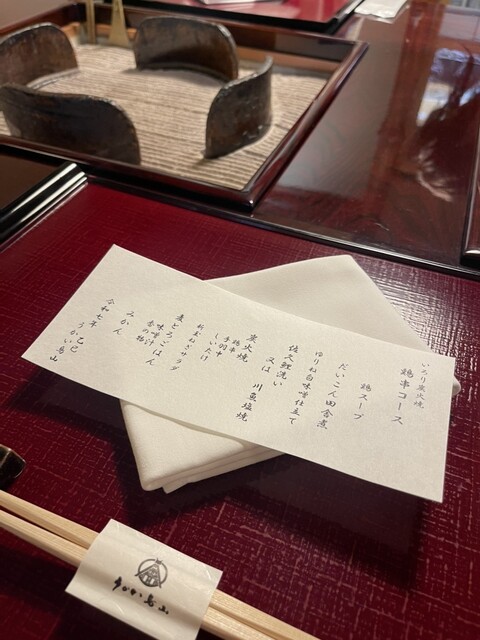 いろり炭火焼
鶏串コース
鶏スープ
だいこん田舎煮
ゆりね白味噌仕立て
佐久鯉洗い
又は 川魚塩焼
炭火焼
鶏串
手羽中
しいたけ
秋玄ねぎサラダ
麦とろごはん
味噌汁
香の物
みかん
令和七年 乙巳
うかい鳥山
うかい鳥山